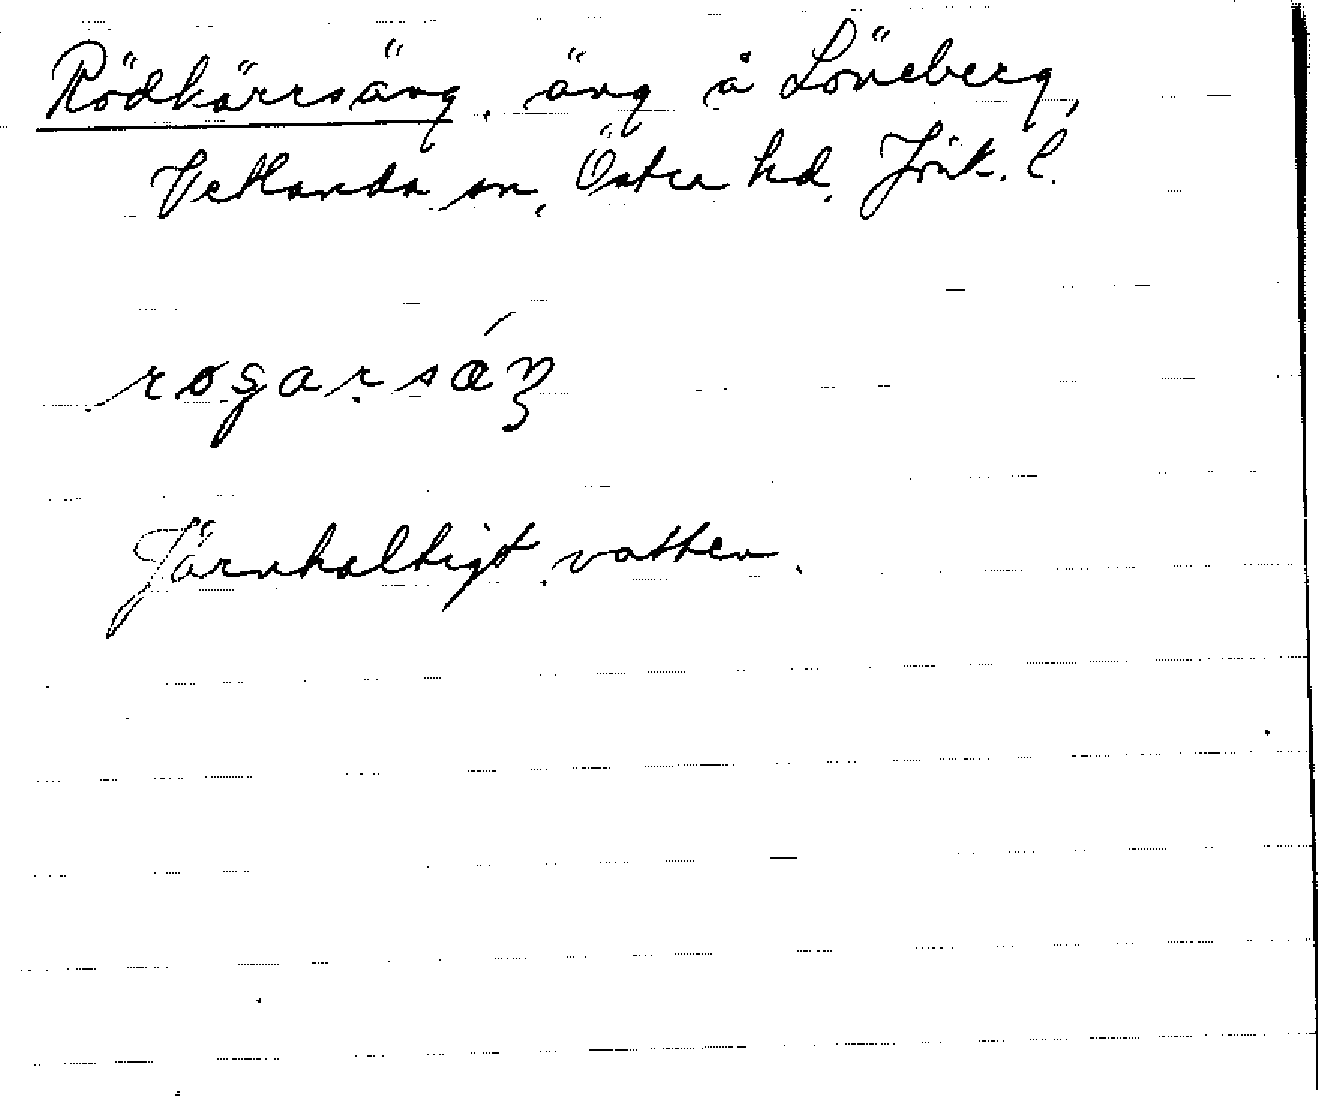 Rödkärrsäng, äng å Löneberg,
Vetlanda sn, Östra hd, Jönk. l.
Järnhaltigt vatten.